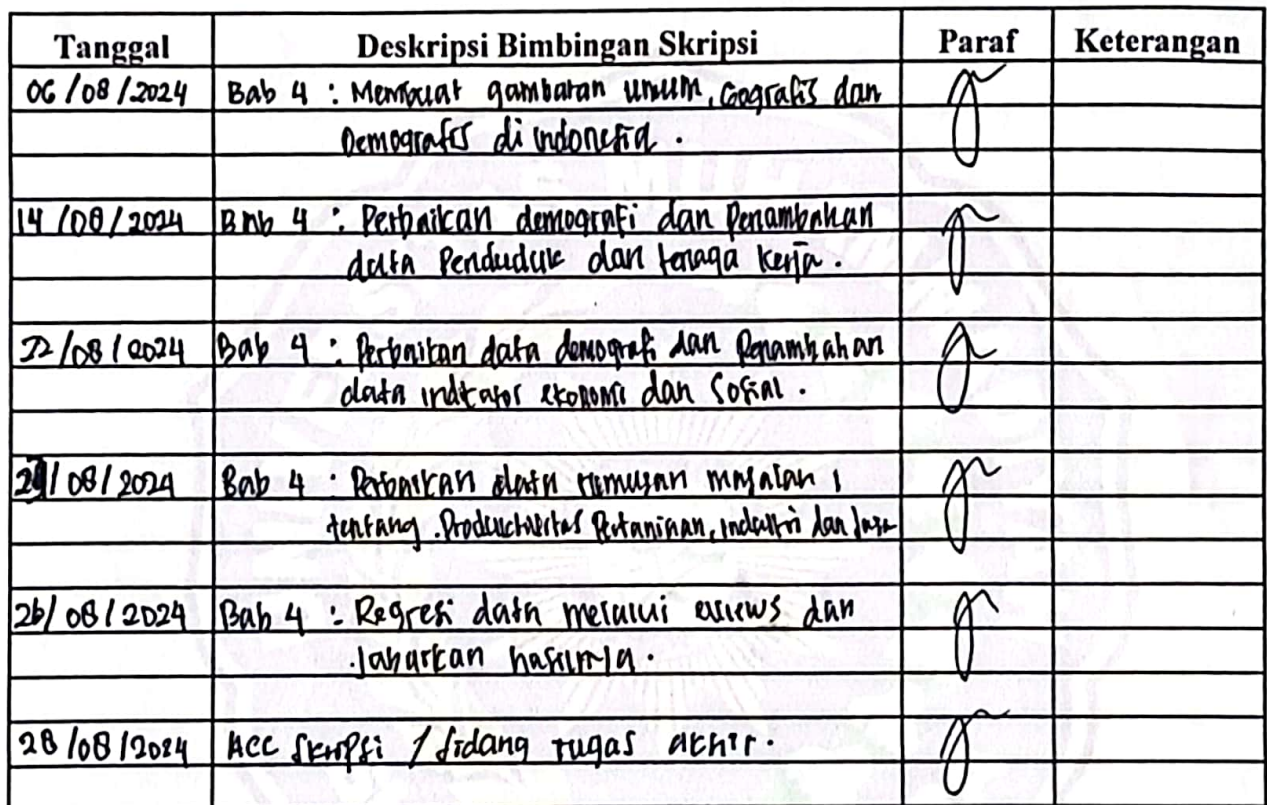 Tanggal Deskripsi Bimbingan Skripsi Paraf Keterangan
06/08/2024 Bab 4 : Membuat gambaran umum, Geografis dan
Demografis di indonesia.
14/08/2024 Bab 4 : Perbaikan demografi dan Penambahan
data Penduduk dan tenaga kerja.
22/08/2024 Bab 4 : Perbaikan data demografi dan Penambahan
data indikator ekonomi dan Sosial.
/08/2024 Bab 4 : Perbaikan data rumusan masalah 1
tentang Productivitas Pertaninan, Industri dan Jasa
26/08/2024 Bab 4 : Regresi data melalui eviews dan
Jabarkan hasilnya.
28/08/2024 ACC Skripsi / Sidang Tugas Akhir.